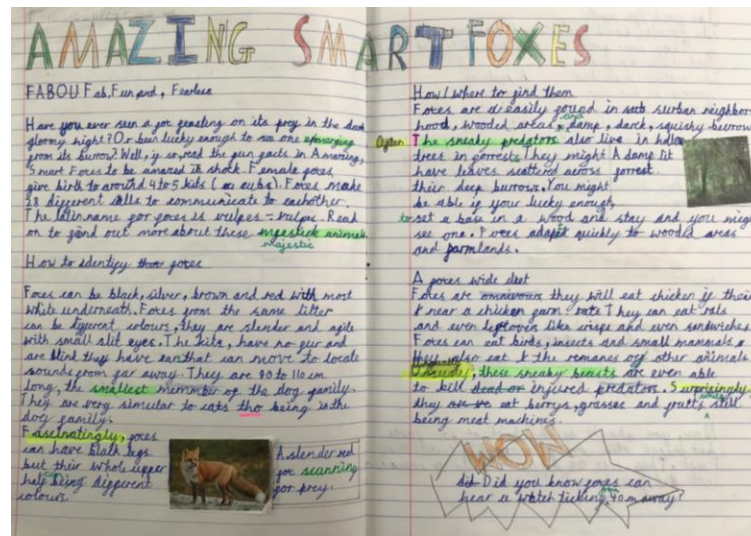 AMAZING SMART FOXES
FABOU Fab, Fun and, Fearless
Have you ever seen a fox feasting on its prey in the dark
gloomy night? Or been lucky enough to see one emerging
from its burrow? Well, if so, read the fun facts in Amazing,
Smart Foxes to be amazed in shock. Female foxes,
give birth to around 4 to 5 kids (or cubs). Foxes make
28 different calls to communicate to eachother.
The latin name for foxes is vulpes - vulpes. Read
on to find out more about these mgestick animals
majestic
How to identify foxes
Foxes can be black, silver, brown and red with most
white underneath. Foxes from the same litter
can be different colours, they are slender and agile
with small slit eyes. The kits, have no fur and
are blind they have ears that can move to locate
sounds from far away. They are 90 to 110 cm
long, the smallest memmber of the dog family.
They are very simular to cats tho being in the
dog family.
Fascinatingly, foxes
can have black legs
but their whole upper
half being different
colours.
A slender red
fox scanning
for prey.
How/where to find them
Foxes are easily found in sub surban neighbor
hood, wooded areas, and damp, darck, squishy burrows
Often The sneaky predators also live in hollow
trees in forrests. They might damp lit
have leaves scatterd across forrest.
their deep burrows. You might
be able if your lucky enough,
to set a base in a wood and stay and you might
see one. Foxes adapt quickly to wooded areas
and farmlands.
A foxes wide diet
Foxes are omnivours they will eat chicken if their
near a chicken farm. They can eat rats
and even leftovers like crisps and even sandwiches.
Foxes can eat birds, insects and small mammals
they also eat the remanes of other animals
these sneaky beasts are even able
to kill dead or injered predators. Surprizingly,
they eat berrys, grasses and fruits while still
being meat machines.
WOW
did Did you know foxes can
hear a watch ticking 40m away?